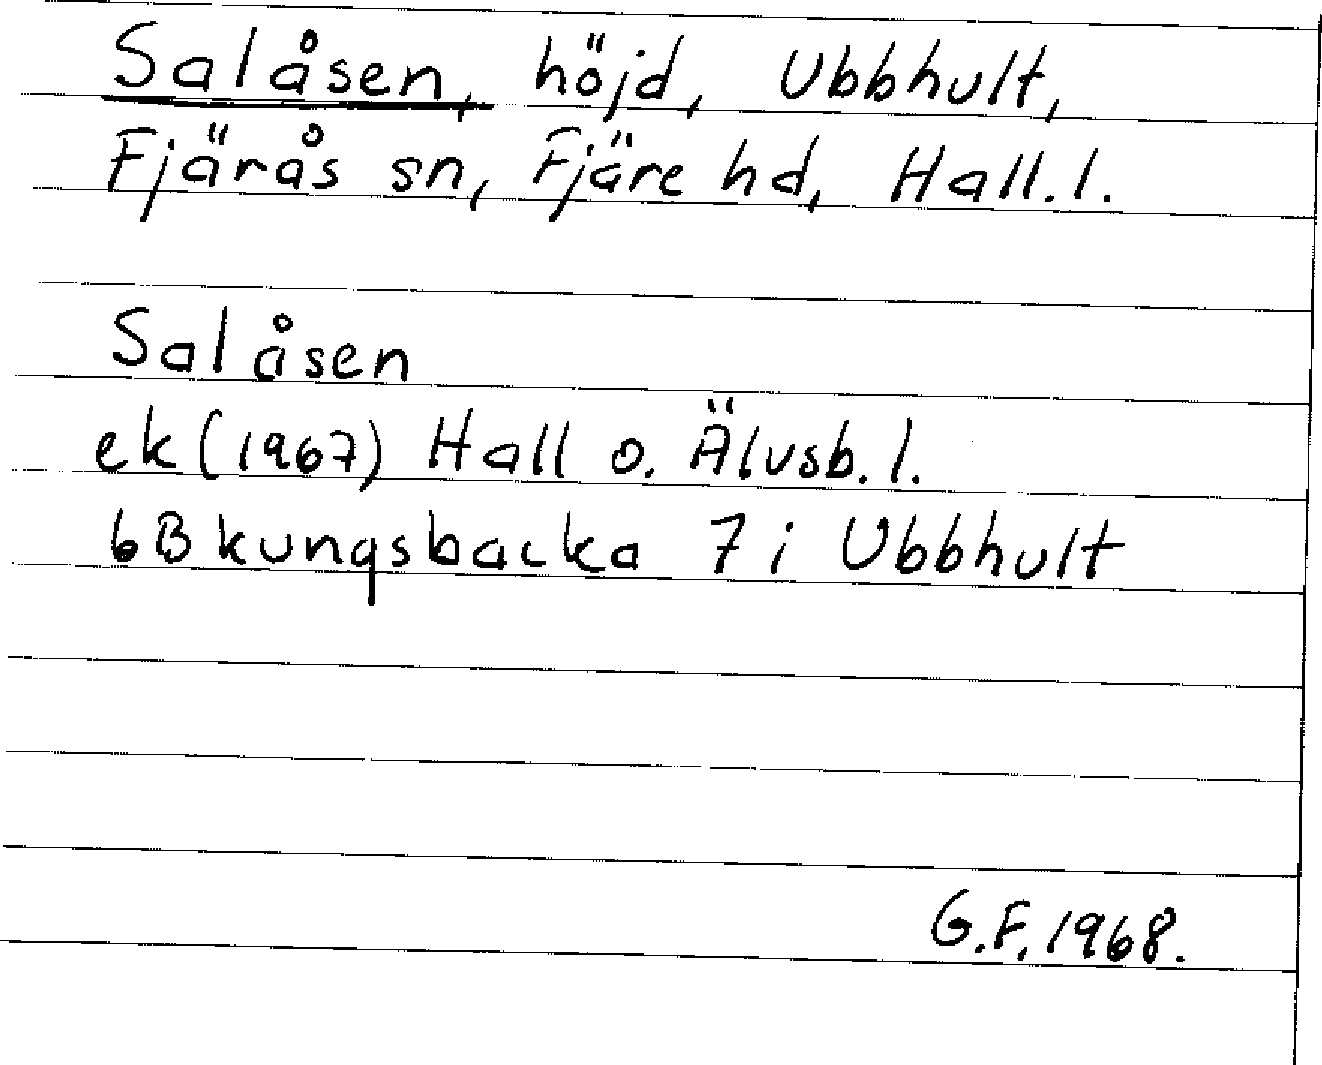 Salåsen, höjd, Ubbhult,
Fjärås sn, Fjäre hd, Hall. l.
Salåsen
ek (1967) Hall o. Älvsb. l.
6B kungsbacka 7 i Ubbhult
G.F. 1968.